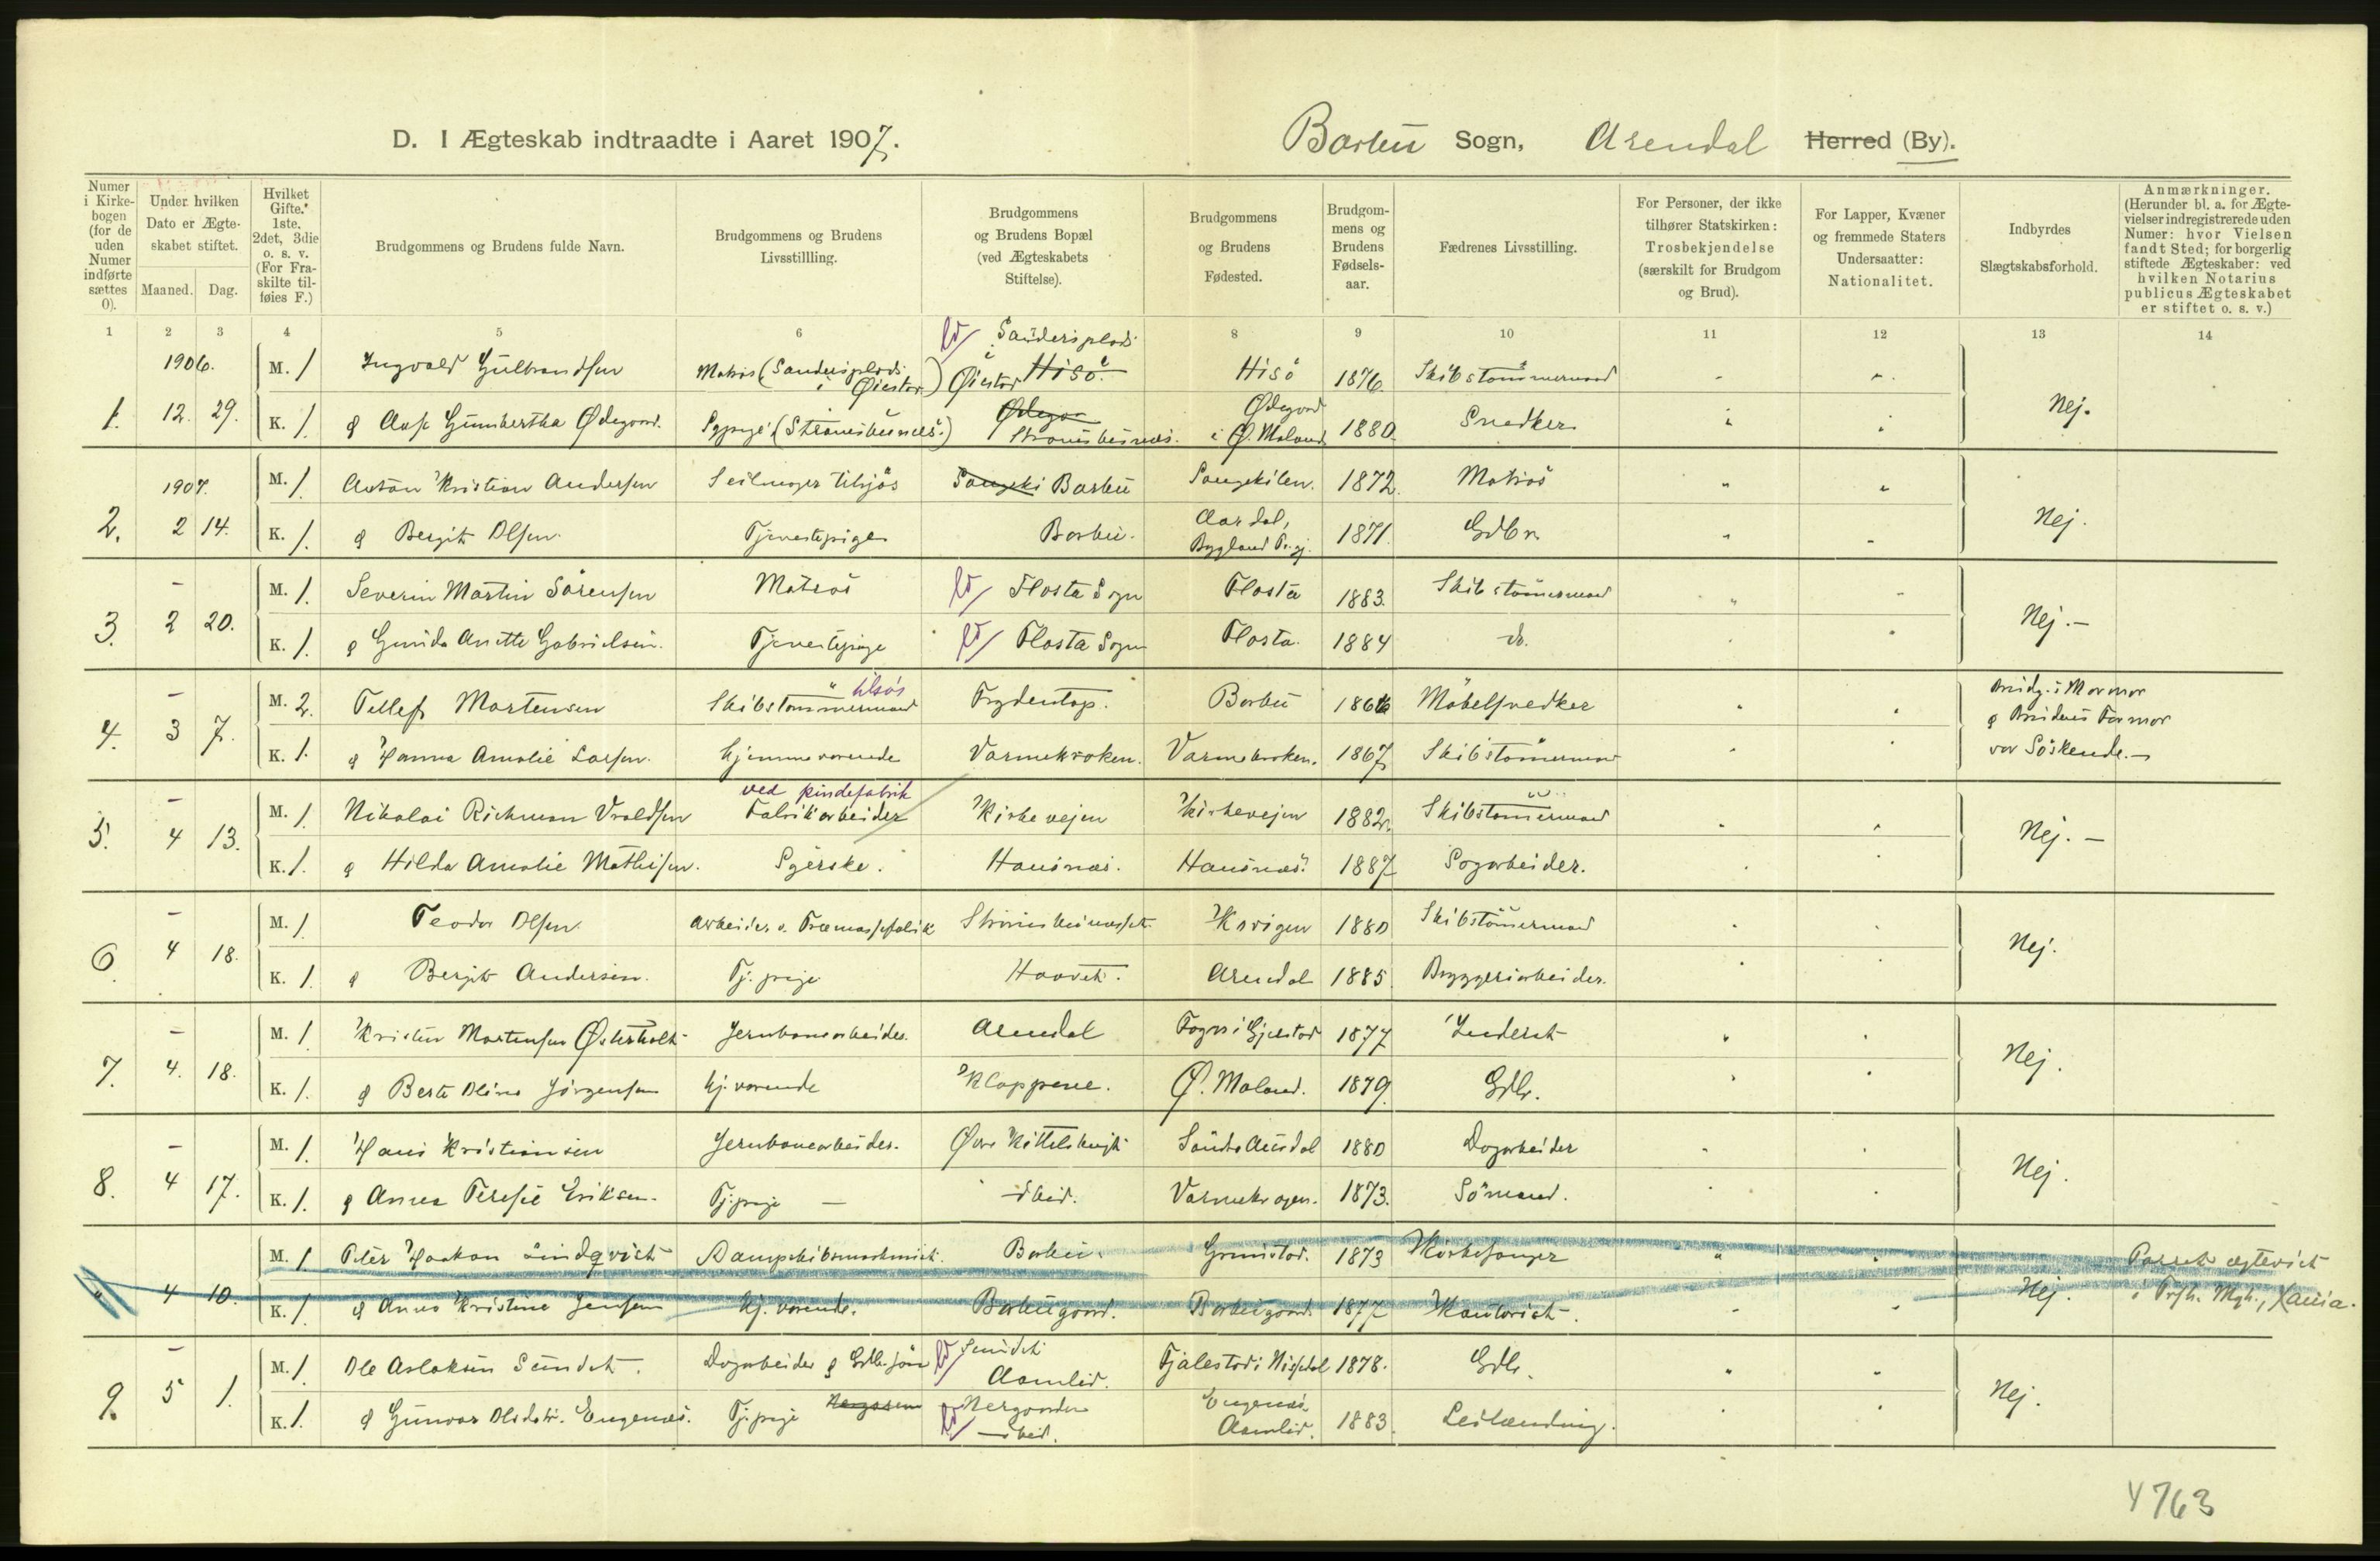 D. I Ægteskab indtraadte i Aaret 1907. Barbu Sogn, Arendal Herred (By).
Numer i Kirkebogen (for de uden Numer indførte sættes 0).
Under hvilken Dato er Ægteskabet stiftet.
Maaned. Dag.
Hvilket Gifte. 1ste. 2det, 3die o. s. v. (For Fraskilte tilføies F.)
Brudgommens og Brudens fulde Navn.
Brudgommens og Brudens Livsstillling.
Brudgommens og Brudens Bopæl (ved Ægteskabets Stiftelse).
Brudgommens og Brudens Fødested.
Brudgommens og Brudens Fødselsaar.
Fædrenes Livsstilling.
For Personer, der ikke tilhører Statskirken: Trosbekjendelse (særskilt for Brudgom og Brud).
For Lapper, Kvæner og fremmede Staters Undersaatter: Nationalitet.
Indbyrdes Slægtskabsforhold.
Anmærkninger. (Herunder bl. a. for Ægtevielser indregistrerede uden Numer: hvor Vielsen fandt Sted; for borgerlig stiftede Ægteskaber: ved hvilken Notarius publicus Ægteskabet er stiftet o. s. v.)
1 2 3 4 5 6 8 9 10 11 12 13 14
Sandersplads
1906. M. 1 Ingvald Gulbrandsen Matros (Sandersplads i Øiestad) Øiestad Hisö. Hisö 1876. Skibstømmermand
1. 12. 29. K. 1. Gumbertha Ødegaard. Sypige (Strømsbunes.) Strømsbunes. Ødegaard i Ø. Moland 1880. Snedker Nej.
1907. M. 1. Anton Kristian Andersen Seilmager tilsjøs Barbu Songekilen. 1872. Matros
2. 2 14. K. 1. g Bergit Olsen. Tjenestepige Barbu. Aardal, Bygland Prgj. 1871. Gdbr. Nej.
- M. 1. Severin Martin Sörensen Matros Flosta Sogn Flosta 1883. Skibstømmermand
3. 2 20. K. 1. g Gunda Anette Gabrielsen. Tjenestepige Flosta Sogn Flosta. 1884 do. Nej.-
- M. 2. Tellef Mortensen Skibstømmermand tilsøs Frydentop. Barbu 1866 Møbelsnedker Brudg.s Mormor
4. 3 7. K. 1. g Hanna Amalie Larsen. hjemmeværende Varmekroken. Varmekroken. 1867. Skibstømmermand g Brudens Farmor
var Söskende.-
ved kindefabrik
- M. 1. Nikolai Rickman Vraldsen Fabrikarbeider Kirkeveien Kirkeveien 1882. Skibstømmermand
5. 4 13. K. 1. g Hilda Amalie Mathisen. Syerske. Hausnæs. Hausnæs. 1887 Sagarbeider. Nej.-
- M. 1. Teodor Olsen Arbeider v. Træmassefabrik Krøgen 1880 Skibstømmermand
6. 4 18. K. 1. g Bergit Andersen. Tj. pige Haavet. Arendal 1885. Bryggeriarbeider. Nej.
- M. 1. Kristen Mortensen Østerholt Jernbanearbeider. Arendal Fogne i Gjerstad 1877 Inderst
7. 4. 18. K. 1. g Berte Oline Jörgensen hj. værende Kloppene. Ø. Moland. 1879. Gdbr. Nej.
- M. 1. Hans Kristiansen Jernbanearbeider. Øvre Kittelsbugt 1880 Dagarbeider
8. 4 17. K. 1. g Anna Teresie Eriksen. Tj. pige - ibid. Varmekrogen. 1873. Sömand. Nej.
M. 1. Peter Haakon Lindqvist Dampskibsmaskinist. Barbu. Grimstad. 1873 Kirkesanger Parret ægteviet
" 4 10. K. 1. g Anna Kristine Jensen hj. værende. Barbugaard. Barbugaard. 1877 Kontorist. Nej. i Trsk. Mgh., Xania.
- M. 1. Ole Aslaksen Sundet. Dagarbeider g Gdbr. søn Sundet Aamlid. Fjalestad i Nissedal 1878. Gdbr.
9. 5 1. K. 1. g Gunvor Olsdtr. Engenes. Tj. pige Nergaarden ibid. Engenes Aamlid. 1883. Leilænding. Nej.
4763